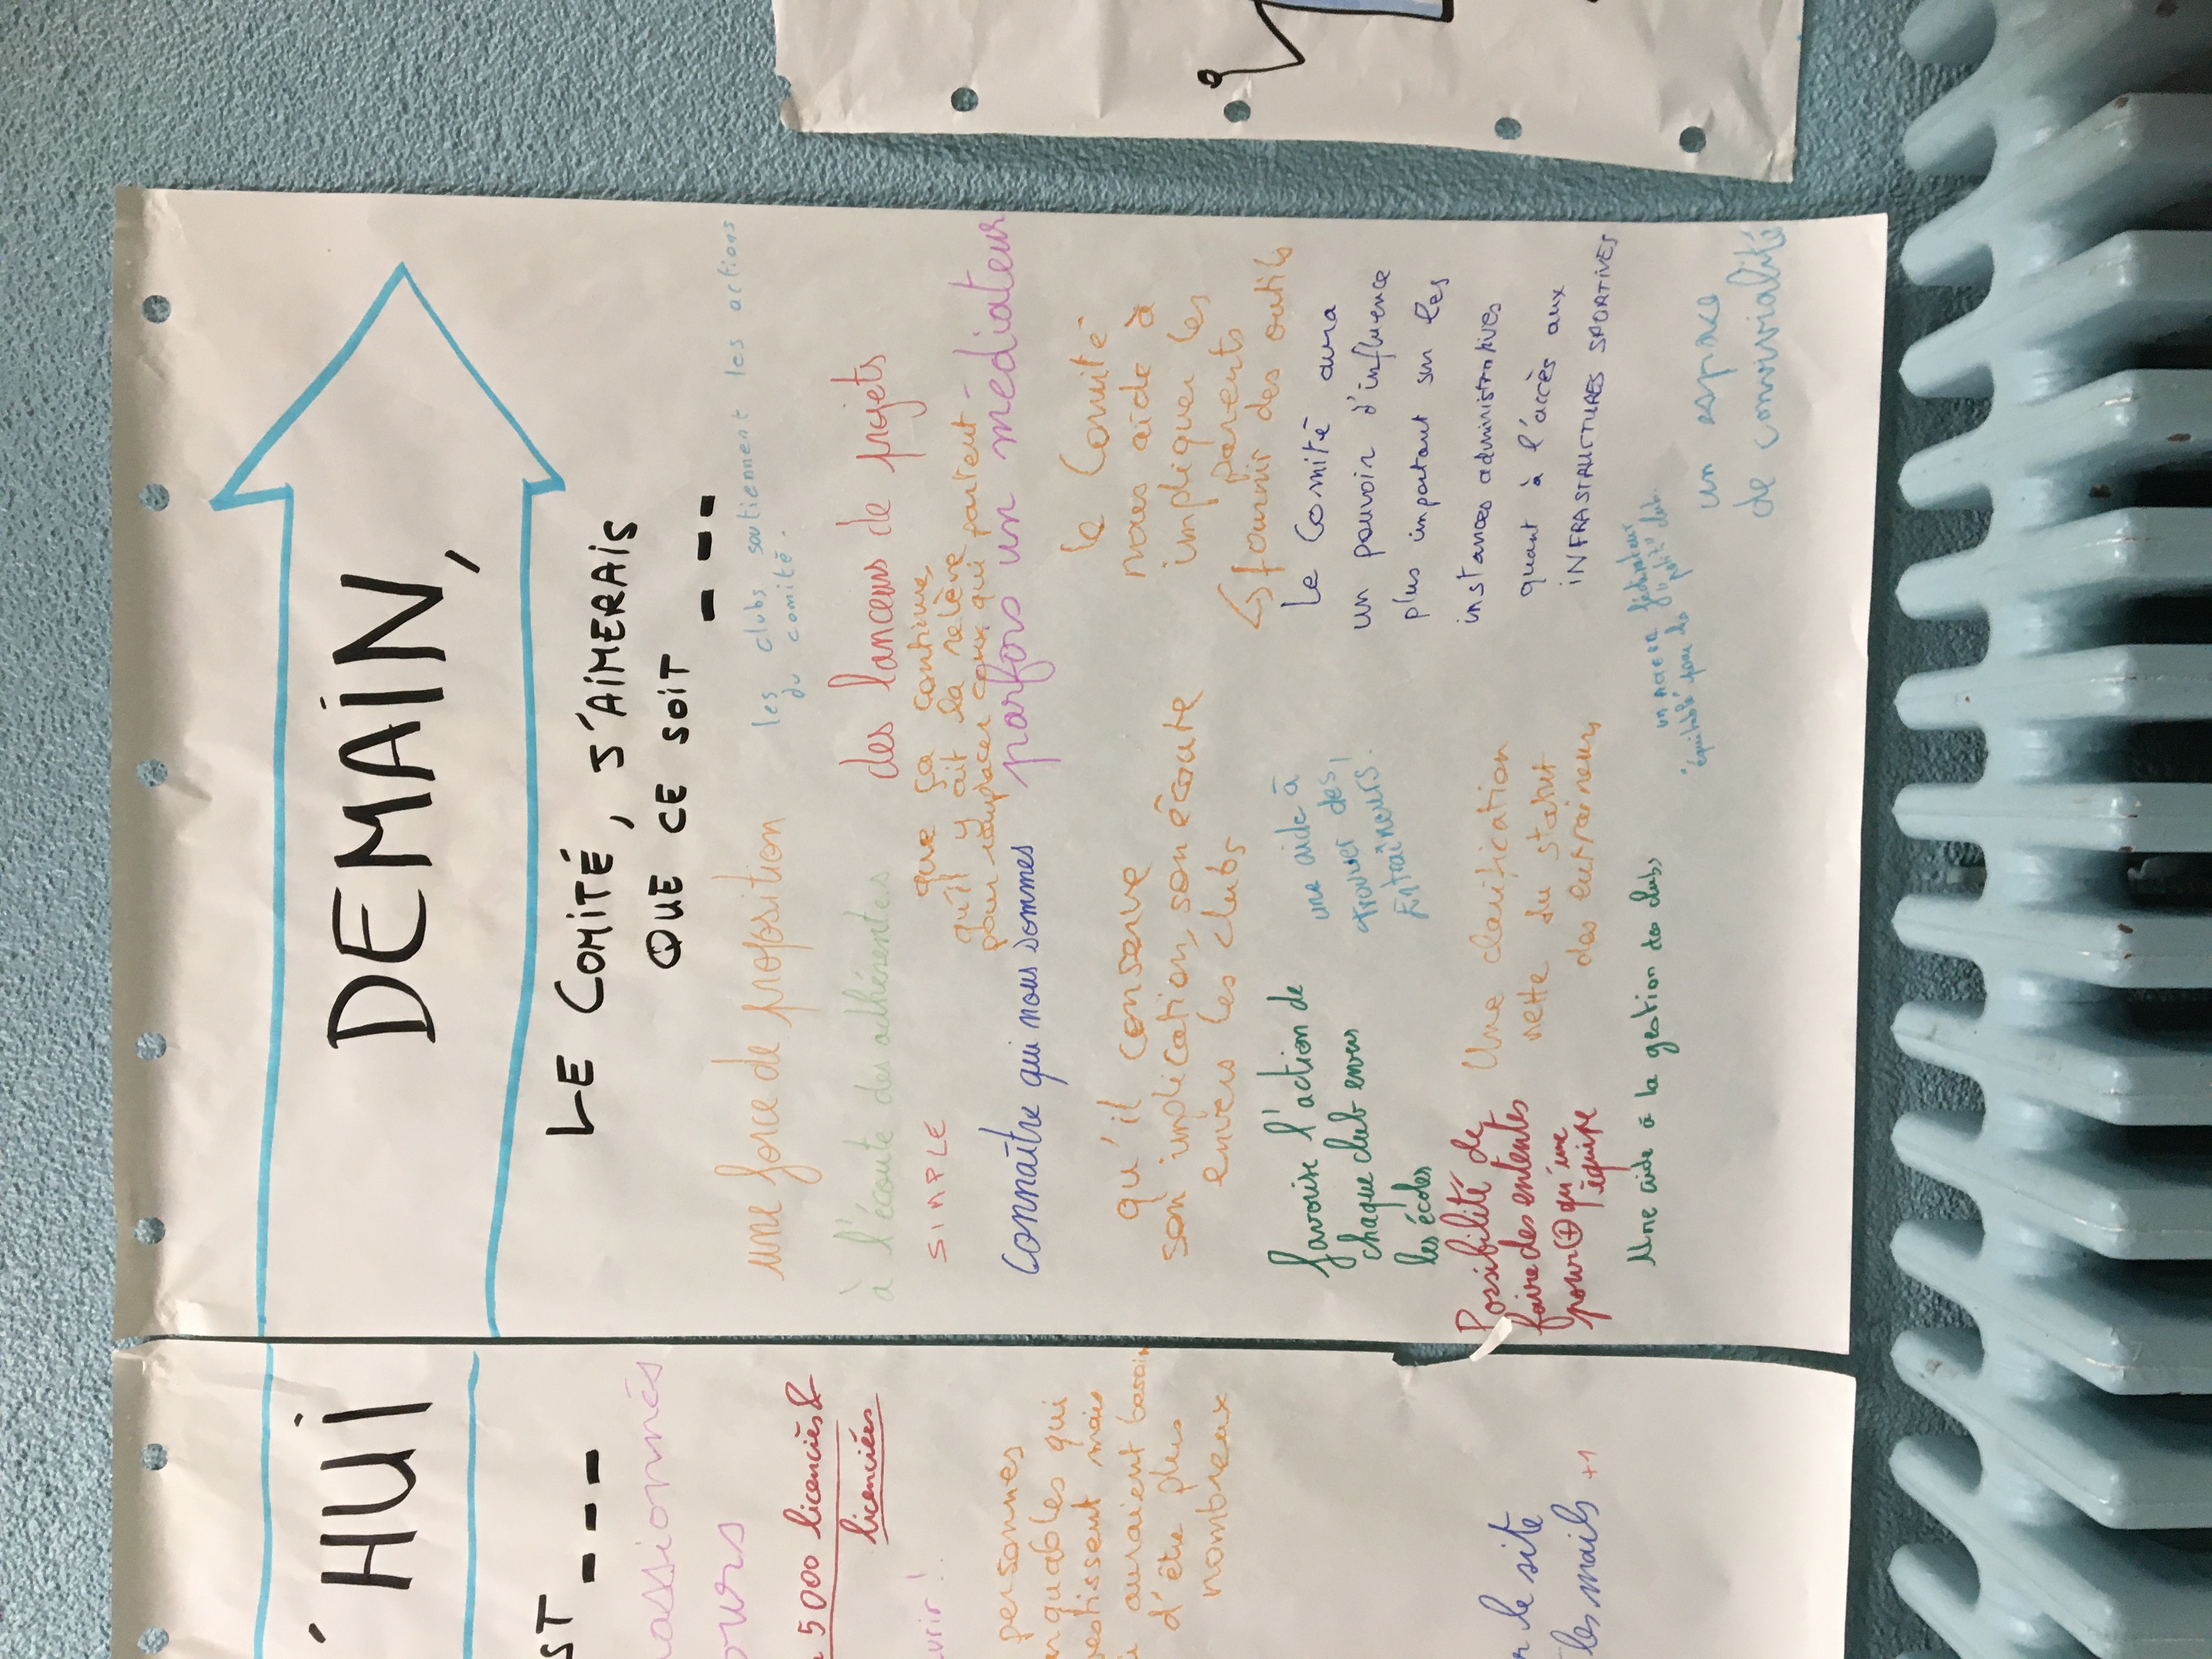 'HUI
ST ---
passionnés
ours
5000 licenciés &
licenciées
uvrir !
personnes
qui
mais
auraient besoin
d'être plus
nombreux
r le site
les mails +1
DEMAIN,
LE COMITÉ, J'AIMERAIS
QUE CE SOIT ---
une force de proposition
les clubs soutiennent les actions
du comité.
à l'écoute des adhérentes
des lanceurs de projets
SIMPLE
que ça continue,
qu'il y ait la relève
pour remplacer ceux qui partent
Connaître qui nous sommes
parfois un médiateur
qu'il conserve
son implication, son écoute
envers les clubs
le Comité
nous aide à
impliquer les
parents
↳ fournir des outils
favorise l'action de
chaque club envers
les écoles
une aide à
trouver des
Entraîneurs.
Le Comité aura
un pouvoir d'influence
plus important sur les
instances administratives
quant à l'accès aux
INFRASTRUCTURES SPORTIVES
Possibilité de
faire des ententes
pour ⊕ qu'une
équipe
Une clarification
nette du statut
des entraineurs
Une aide à la gestion des clubs
un
"équitable" pour les "petits" club.
un espace
de convivialité